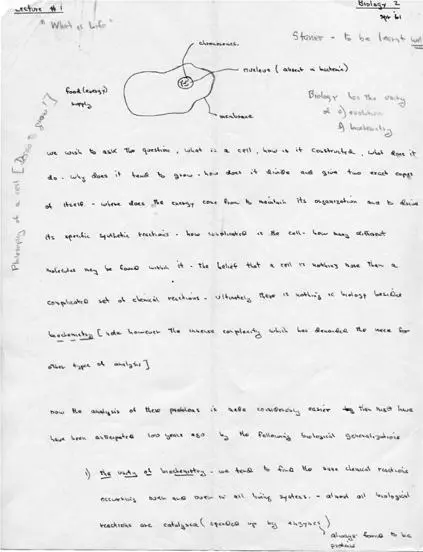 Lecture #1
Biology 2
"What is Life"
Sept 61
chromosomes
nucleus (absent in bacteria)
food (energy)
supply
membrane
Biology has the unity
of a) evolution
b) biochemistry
Philosophy of a cell
we wish to ask the question, what is a cell, how is it constructed, what does it
do. why does it tend to grow. how does it divide and give two exact copies
of itself - where does the energy come from to maintain its organization and to drive
its specific synthetic reactions. how complicated is the cell. how many different
molecules may be found within it - The belief that a cell is nothing more than a
complicated set of chemical reactions - ultimately there is nothing in biology besides
biochemistry [note however the immense complexity which has demanded the need for
other types of analysis]
now the analysis of these problems is made considerably easier than might have
have been anticipated 100 years ago by the following biological generalizations
1) the unity of biochemistry - we tend to find the same chemical reactions
occurring over and over in all living systems. - almost all biological
reactions are catalyzed (speeded up by enzymes)
always found to be
protein